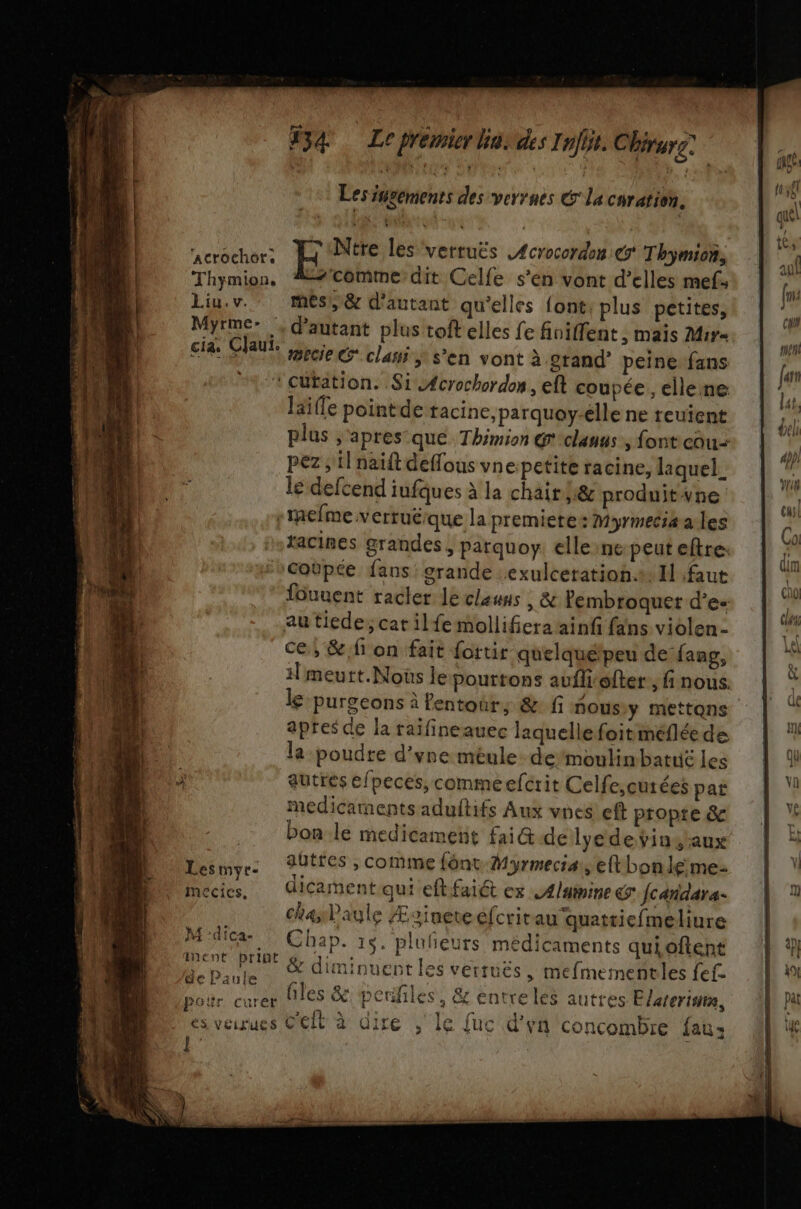 134 Le premier liu. des Inſtit. Chirurg.
Les iugements des verrues & la curation.
Acrochor.
Thymion.
Liu. v.
Myrme-
cia. Claui.
ENtre les verruës Acrocordon & Thymion,
comme dit Celſe s'en vont d'elles meſ-
mes, & d'autant qu'elles ſont plus petites,
d'autant plus toſt elles ſe finiſſent, mais Mir-
mecie & claui, s'en vont à grand' peine ſans
curation. Si Acrochordon, eſt coupée, elle ne
laiſſe point de racine, parquoy elle ne reuient
plus, apres que Thimion & clauus, ſont cou-
pez, il naiſt deſſous vne petite racine, laquel_
le deſcend iuſques à la chair, & produit vne
meſme verruë que la premiere : Myrmecia a les
racines grandes, parquoy elle ne peut eſtre
coupée ſans grande exulceration. Il faut
ſouuent racler le clauus, & l'embroquer d'e-
au tiede, car il ſe mollifiera ainſi ſans violen-
ce, & ſi on fait ſortir quelque peu de ſang,
il meurt. Nous le pourrons auſſi oſter, ſi nous
le purgeons à l'entour, & ſi nous y mettons
apres de la raiſine auec laquelle ſoit meſlée de
la poudre d'vne meule de moulin batuë les
autres eſpeces, comme eſcrit Celſe, curées par
medicaments aduſtifs Aux vnes eſt propre &
bon le medicament faict de lye de vin, aux
autres, comme ſont Myrmecia, eſt bon le me-
dicament qui eſt faict ex Alumine & ſcandara-
cha, Paule Æginete eſcrit au quatrieſme liure
Chap. 15. pluſieurs medicaments qui oſtent
& diminuent les verruës, meſmement les ſeſ-
ſiles & penſiles, & entre les autres Elaterium,
c'eſt à dire, le ſuc d'vn concombre ſau-
Les myr-
mecies.
M dica-
ment print
de Paule
pour curer
es verrues